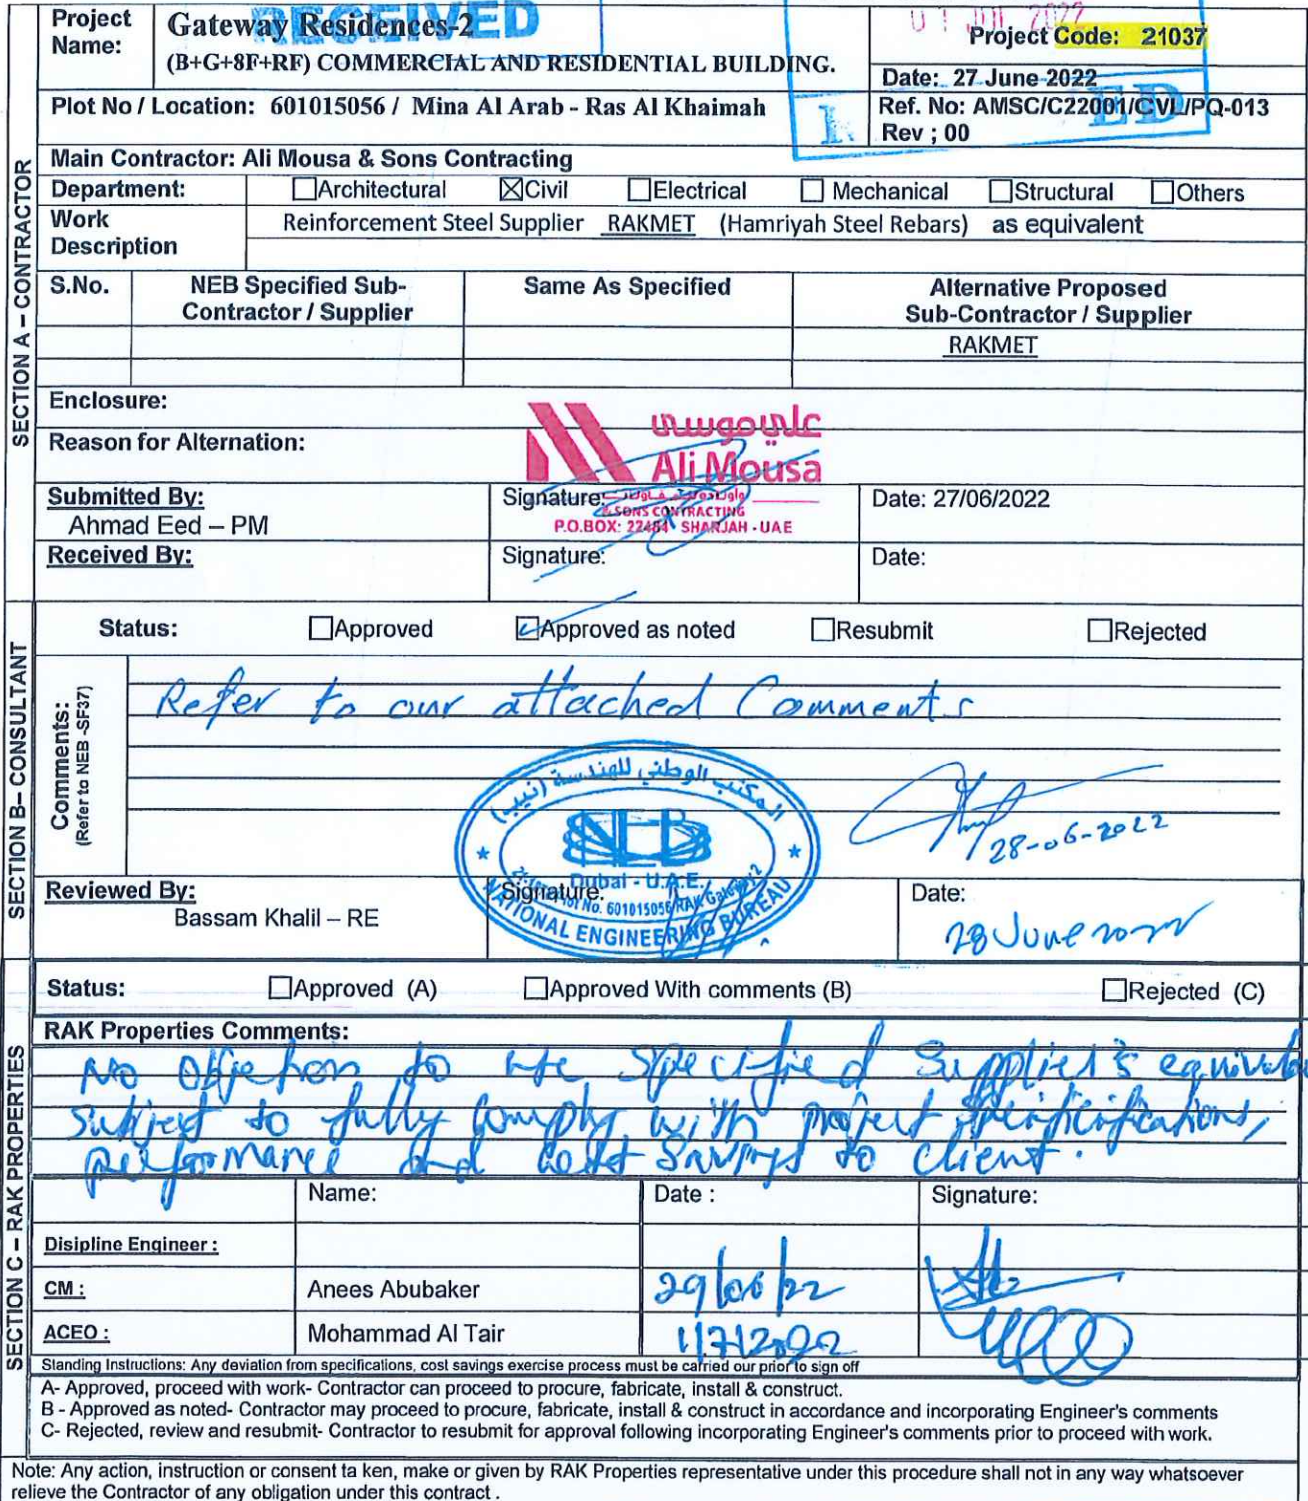 RECEIVED
01 JUL 2022
Project Name:
Gateway Residences-2
(B+G+8F+RF) COMMERCIAL AND RESIDENTIAL BUILDING.
Project Code: 21037
Date: 27 June 2022
Plot No / Location: 601015056 / Mina Al Arab - Ras Al Khaimah
Ref. No: AMSC/C22001/CVL/PQ-013
Rev ; 00
SECTION A – CONTRACTOR
Main Contractor: Ali Mousa & Sons Contracting
Department: ☐Architectural ☒Civil ☐Electrical ☐ Mechanical ☐Structural ☐Others
Work Description
Reinforcement Steel Supplier RAKMET (Hamriyah Steel Rebars) as equivalent
S.No.
NEB Specified Sub-Contractor / Supplier
Same As Specified
Alternative Proposed Sub-Contractor / Supplier
RAKMET
Enclosure:
Reason for Alternation:
علي موسى
Ali Mousa
& SONS CONTRACTING
P.O.BOX: 22484 SHARJAH - UAE
Submitted By:
Ahmad Eed – PM
Signature:
Date: 27/06/2022
Received By:
Signature:
Date:
SECTION B– CONSULTANT
Status: ☐Approved ☑Approved as noted ☐Resubmit ☐Rejected
Comments:
(Refer to NEB -SF37)
Refer to our attached Comments
28-06-2022
المكتب الوطني للهندسة (نيب)
NEB
Dubai - U.A.E.
Plot No. 601015056 RAK Gateway 2
NATIONAL ENGINEERING BUREAU
Reviewed By:
Bassam Khalil – RE
Signature:
Date:
28 June 2022
SECTION C – RAK PROPERTIES
Status: ☐Approved (A) ☐Approved With comments (B) ☐Rejected (C)
RAK Properties Comments:
No objection to the specified supplier's
subject to fully comply with project specifications,
performance and cost savings to client.
Name:
Date :
Signature:
Disipline Engineer :
CM :
Anees Abubaker
29/06/22
ACEO :
Mohammad Al Tair
1/7/2022
Standing Instructions: Any deviation from specifications, cost savings exercise process must be carried our prior to sign off
A- Approved, proceed with work- Contractor can proceed to procure, fabricate, install & construct.
B - Approved as noted- Contractor may proceed to procure, fabricate, install & construct in accordance and incorporating Engineer's comments
C- Rejected, review and resubmit- Contractor to resubmit for approval following incorporating Engineer's comments prior to proceed with work.
Note: Any action, instruction or consent ta ken, make or given by RAK Properties representative under this procedure shall not in any way whatsoever
relieve the Contractor of any obligation under this contract .